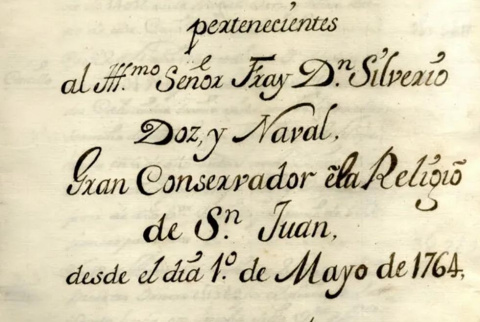 pertenecientes
al Ill.mo Señor Fray D.n Silverio
Doz, y Naval,
Gran Conservador ẽla Religiõ
de S.n Juan,
desde el dia 1.o de Mayo de 1764,